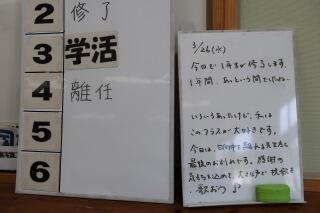 修了
2
3 学活
4 離任
5
6
3/26(水)
今日で1年生が修了します。
1年間、あっという間でしたね…
いろいろあったけど、私は
このクラスが大好きです。
今日は、
最後のお別れです。感謝の
気持ちを込めて
歌おう♪